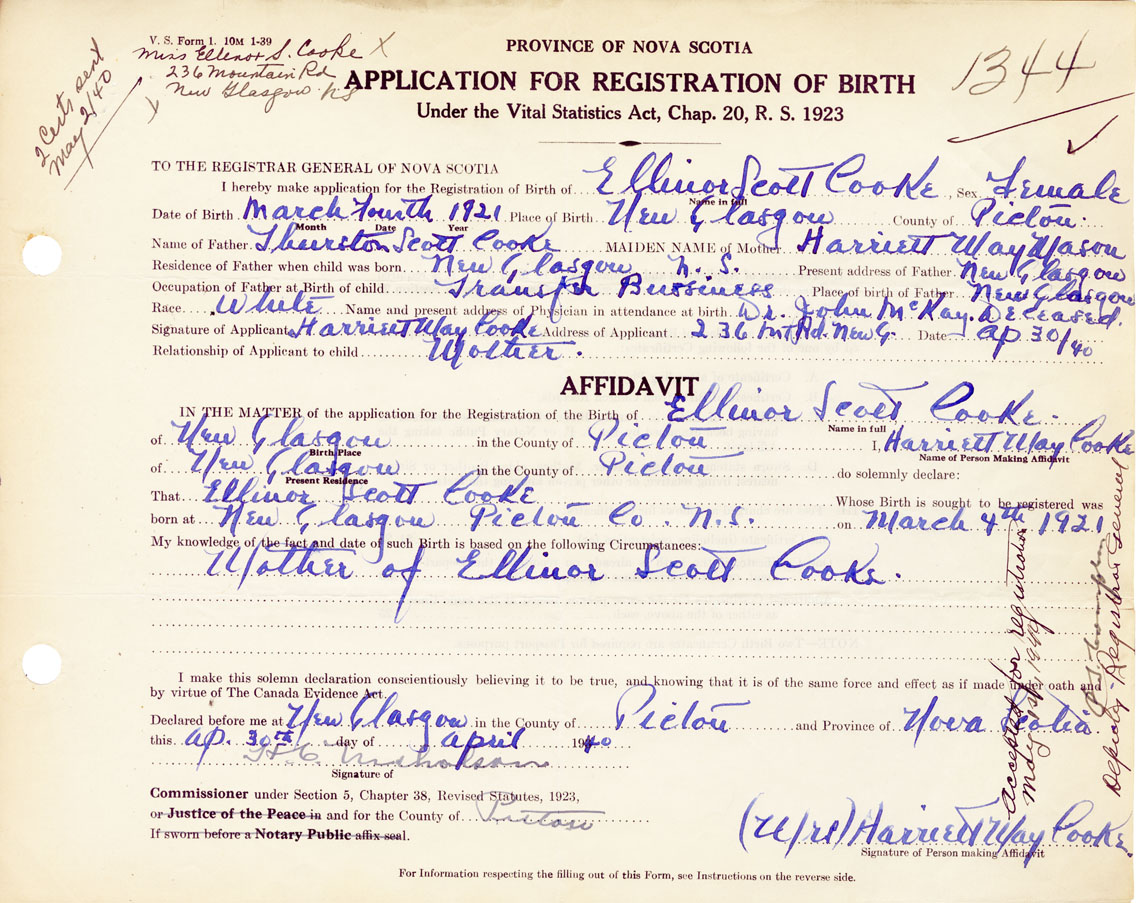 V. S. Form 1. 10M 1-39
Miss Ellenor S. Cooke X
236 Mountain Rd
New Glasgow NS
2 Certs sent
May 2/40
PROVINCE OF NOVA SCOTIA
APPLICATION FOR REGISTRATION OF BIRTH
Under the Vital Statistics Act, Chap. 20, R. S. 1923
1344
TO THE REGISTRAR GENERAL OF NOVA SCOTIA
I hereby make application for the Registration of Birth of Ellinor Scott Cooke, Sex Female
Name in full
Date of Birth March Fourth 1921 Place of Birth New Glasgow County of Pictou.
Month Date Year
Name of Father Thurston Scott Cooke MAIDEN NAME of Mother Harriett May Mason
Residence of Father when child was born New Glasgow N. S. Present address of Father New Glasgow
Occupation of Father at Birth of child Transfer Bussiness Place of birth of Father New Glasgow
Race White Name and present address of Physician in attendance at birth Dr. John McKay. Deceased.
Signature of Applicant Harriett May Cooke Address of Applicant 236 Mt Rd. New G. Date ap 30/40
Relationship of Applicant to child Mother.
AFFIDAVIT
IN THE MATTER of the application for the Registration of the Birth of Ellinor Scott Cooke.
Name in full
of New Glasgow in the County of Pictou I, Harriett May Cooke
Birth Place Name of Person Making Affidavit
of New Glasgow in the County of Pictou do solemnly declare:
Present Residence
That Ellinor Scott Cooke Whose Birth is sought to be registered was
born at New Glasgow Pictou Co. N.S. on March 4th 1921
My knowledge of the fact and date of such Birth is based on the following Circumstances:
Mother of Ellinor Scott Cooke.
I make this solemn declaration conscientiously believing it to be true, and knowing that it is of the same force and effect as if made under oath and
by virtue of The Canada Evidence Act.
Declared before me at New Glasgow in the County of Pictou and Province of Nova Scotia
this ap. 30th day of april 1940
H. C. Nicholson
Signature of
Commissioner under Section 5, Chapter 38, Revised Statutes, 1923,
or Justice of the Peace in and for the County of Pictou
If sworn before a Notary Public affix seal.
(Mrs) Harriett May Cooke.
Signature of Person making Affidavit
For Information respecting the filling out of this Form, see Instructions on the reverse side.
Accepted for registration
May 1st 1940
Deputy Registrar General